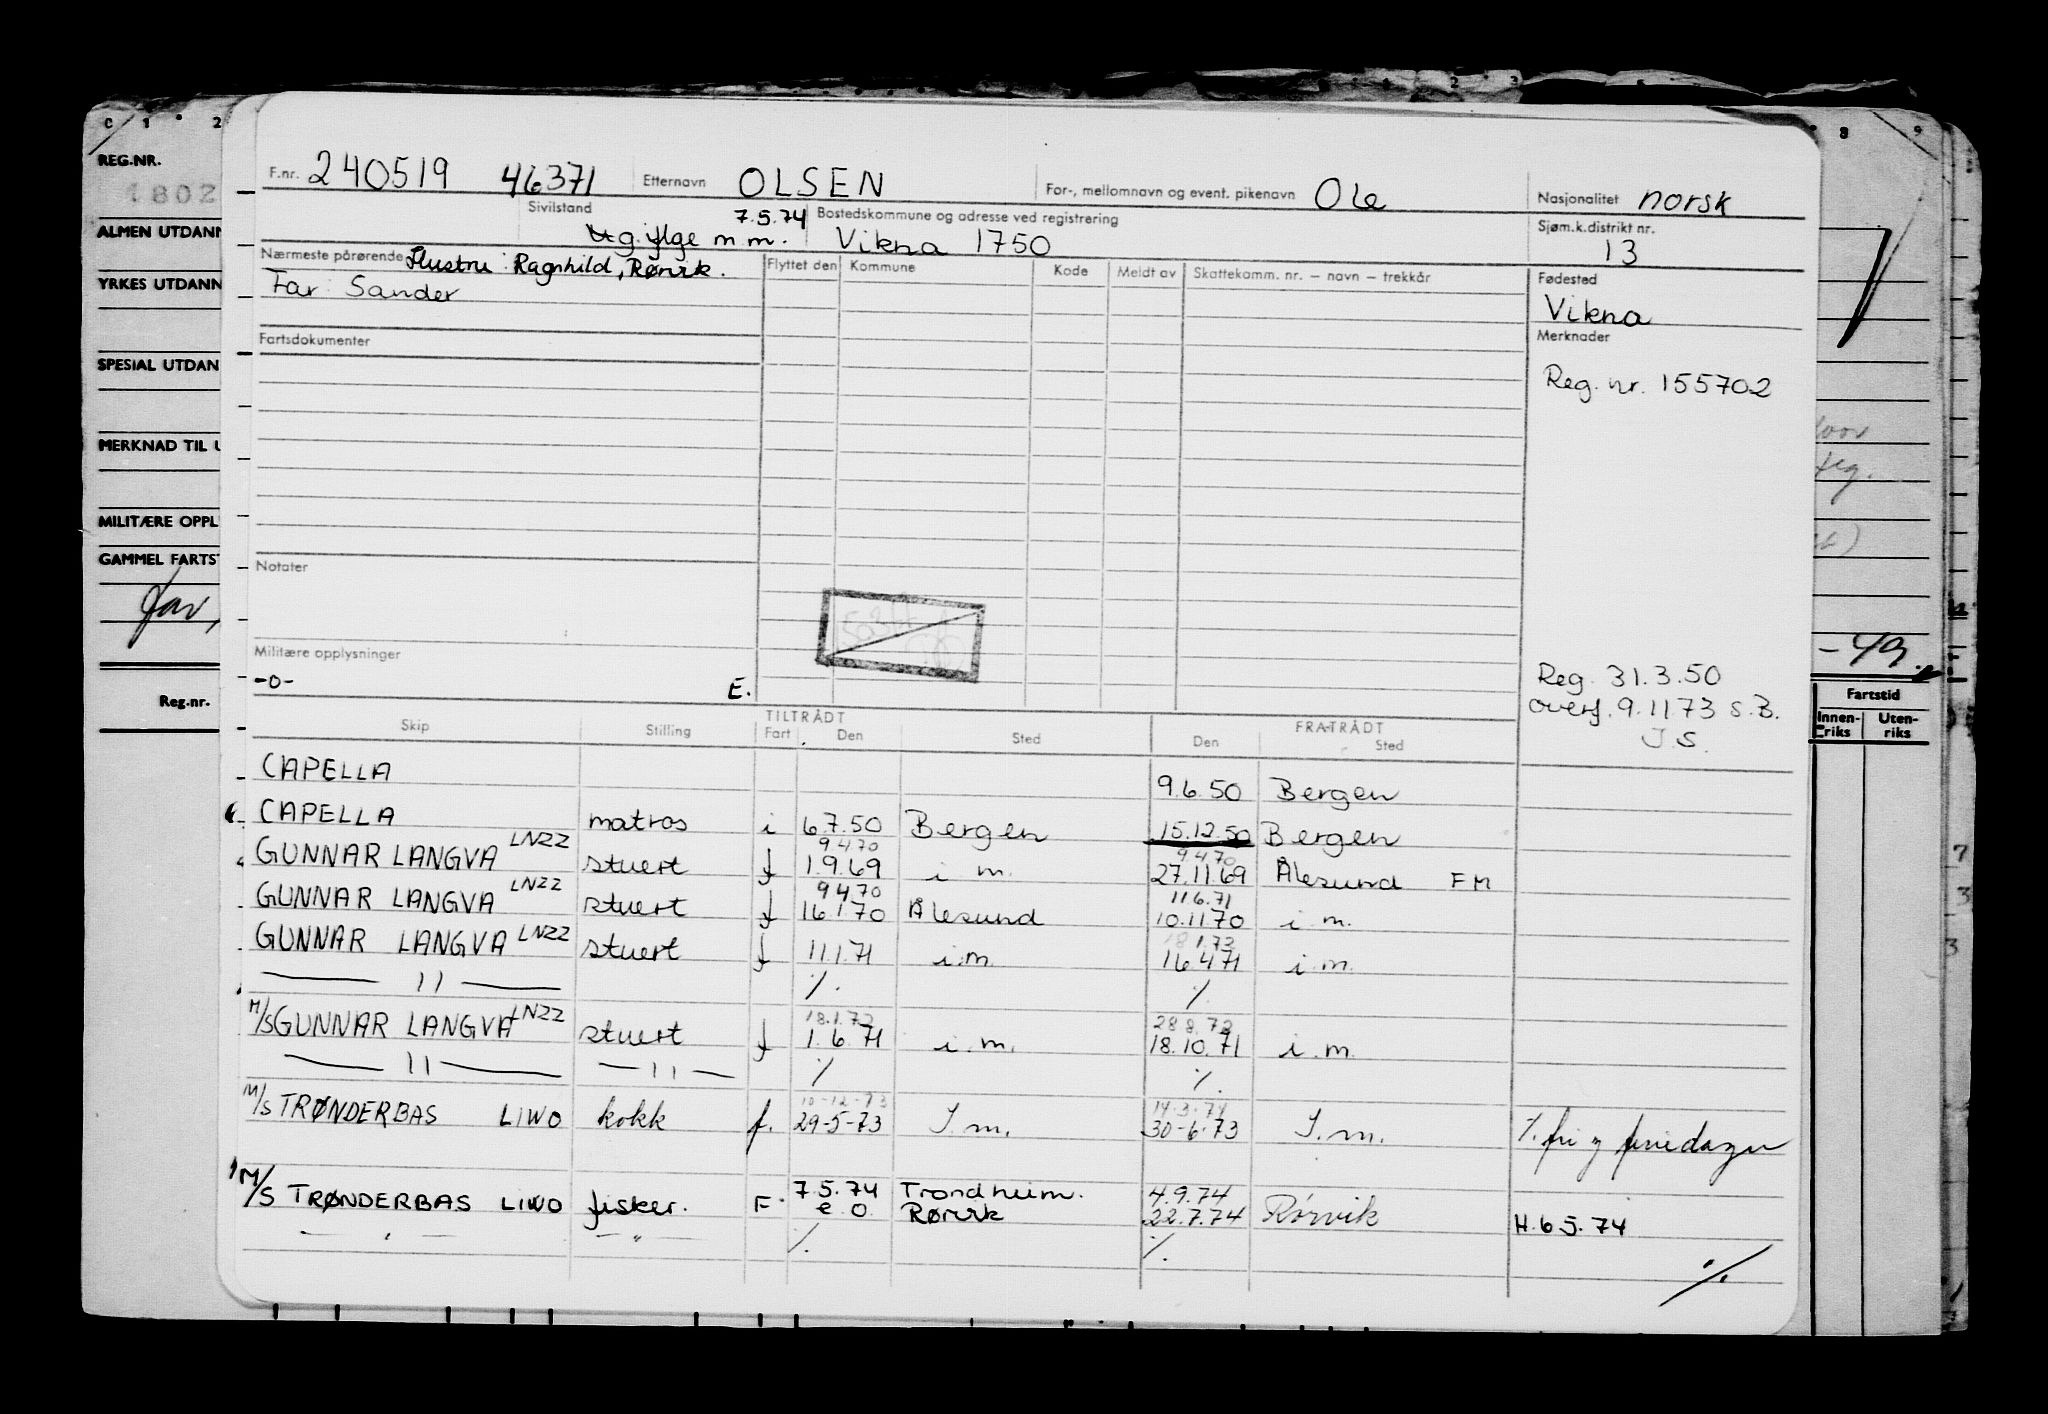 C 1 2 8 9
REG.NR.
1802
ALMEN UTDANN
YRKES UTDANN
SPESIAL UTDAN
MERKNAD TIL U
MILITÆRE OPPL
GAMMEL FARTST
far,
Reg.nr.
F.nr. 240519 46371 Etternavn OLSEN For-, mellomnavn og event. pikenavn Ole Nasjonalitet norsk
Sivilstand 7.5.74 Bostedskommune og adresse ved registrering Sjøm.k.distrikt nr.
Ug. iflge m.m. Vikna 1750 13
Nærmeste pårørende Hustru: Ragnhild, Rørvik. Flyttet den Kommune Kode Meldt av Skattekomm. nr. – navn – trekkår Fødested
Far: Sander Vikna
Fartsdokumenter Merknader
Reg. nr. 155702
Notater
Militære opplysninger
-o- E.
Reg. 31.3.50
overf. 9.11.73 S.B.
J.S.
- 49.
Fartstid
Innen-riks Uten-riks
TILTRÅDT FRATRÅDT
Skip Stilling Fart Den Sted Den Sted
CAPELLA 9.6.50 Bergen
CAPELLA matros i 6.7.50 Bergen 15.12.50 Bergen
9.4.70 9.4.70
GUNNAR LANGVA LNZZ stuert f 1.9.69 i m. 27.11.69 Ålesund FM
9.4.70 11.6.71
GUNNAR LANGVA LNZZ stuert f 16.1.70 Ålesund 10.11.70 i.m.
18.1.72
GUNNAR LANGVA LNZZ stuert f 11.1.71 i.m. 16.4.71 i.m.
— 11 — %. %.
18.1.72 28.8.72
M/S GUNNAR LANGVA LNZZ stuert f 1.6.71 i.m. 18.10.71 i.m.
— 11 — — 11 — % %.
10-12-73 14.3.74
M/S TRØNDERBAS LIWO kokk f. 29-5-73 I.m. 30-6-73 I.m. %. fri
7.5.74 Trondheim. 4.9.74
M/S TRØNDERBAS LIWO fisker. F. e.o. Rørvik 22.7.74 Rørvik H.6.5.74
— " — — " — %. %. %